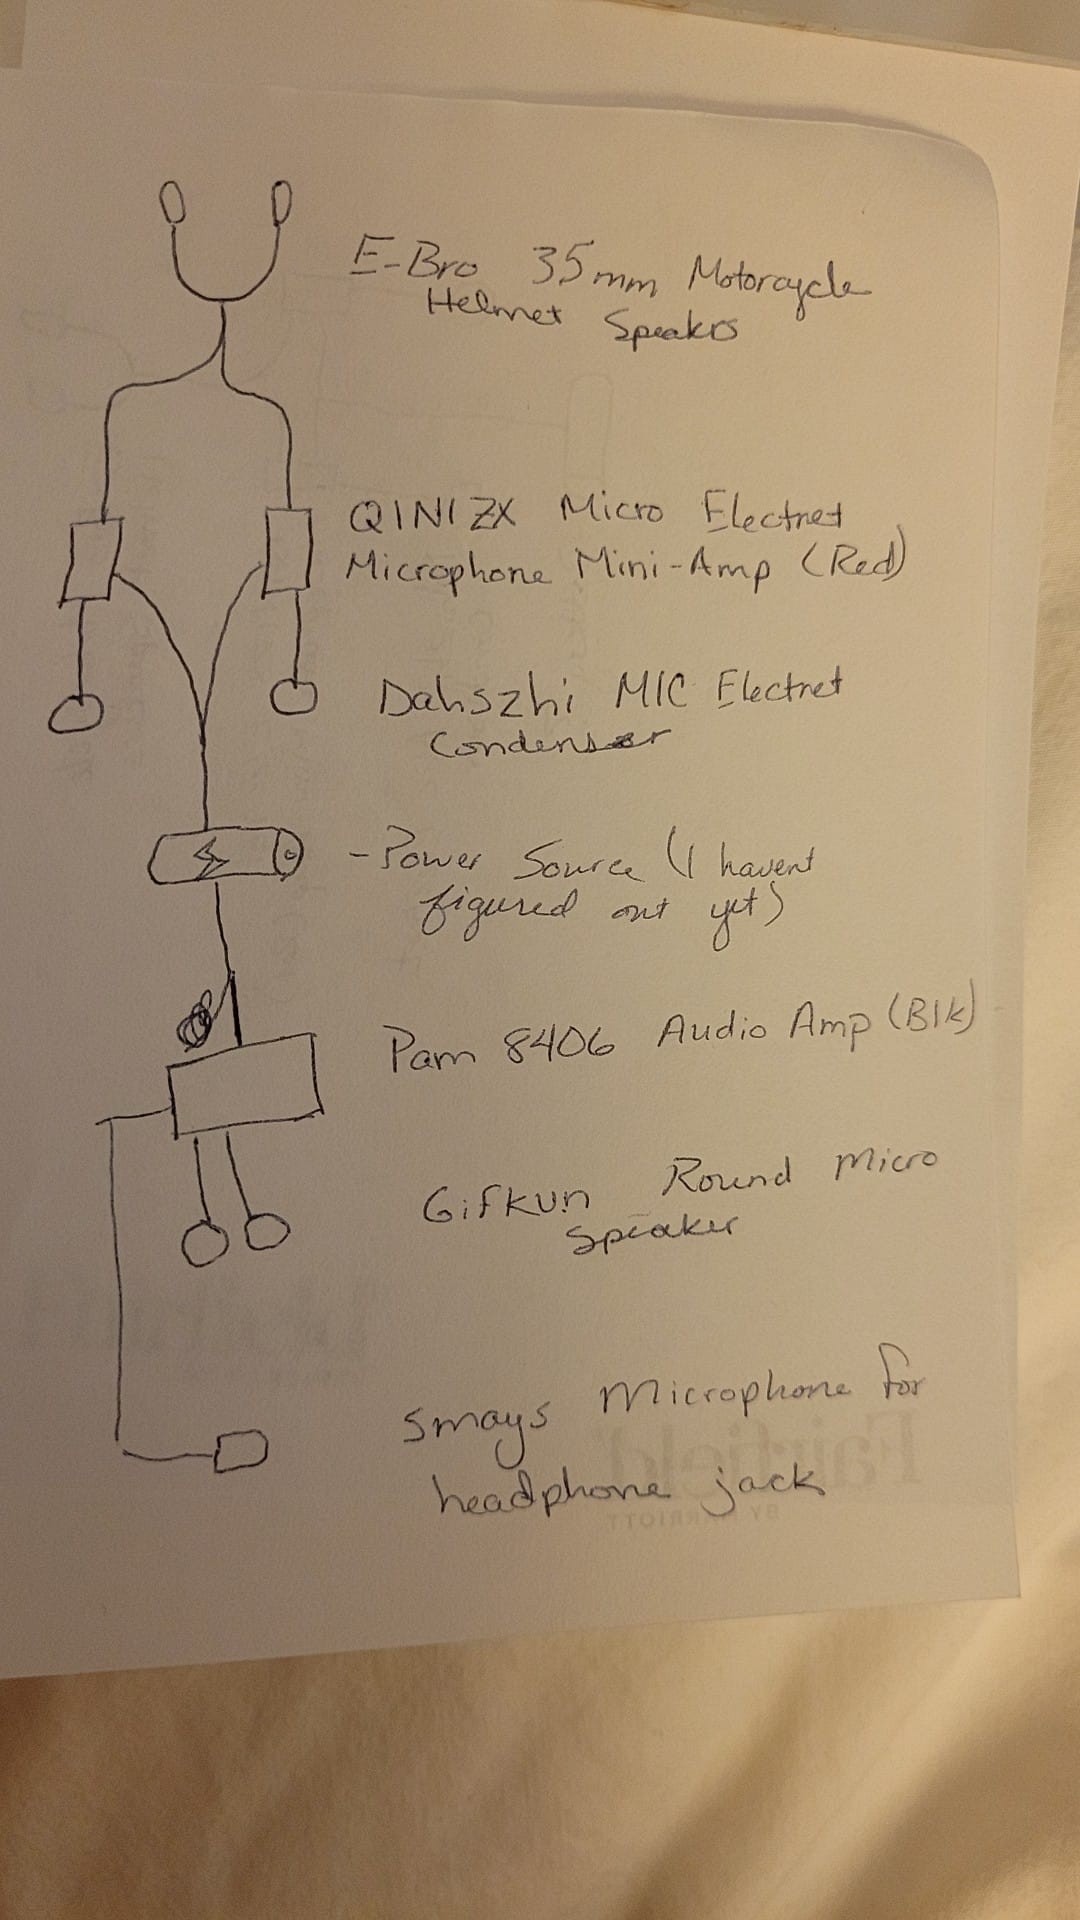 E-Bro 35mm Motorcycle
Helmet Speakrs
QINIZX Micro Electret
Microphone Mini-Amp (Red)
Dahszhi MIC Electret
Condenser
-Power Source (I havent
figured out yet)
Pam 8406 Audio Amp (Blk)
Gifkun Round Micro
Speaker
smays Microphone for
headphone jack
Fairfield
BY MARRIOTT